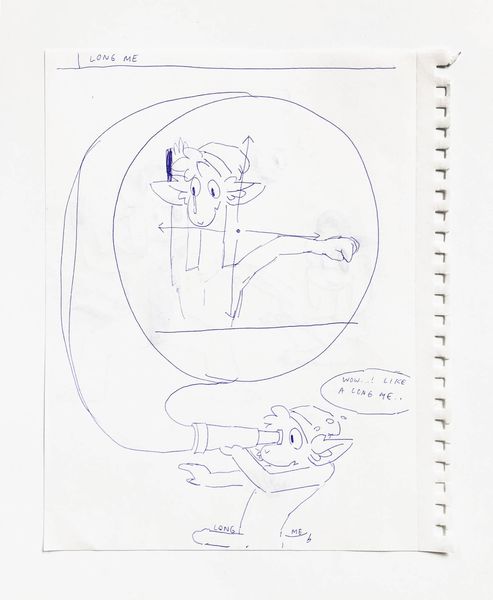 LONG ME
WOW..! LIKE
A LONG ME..
LONG ME